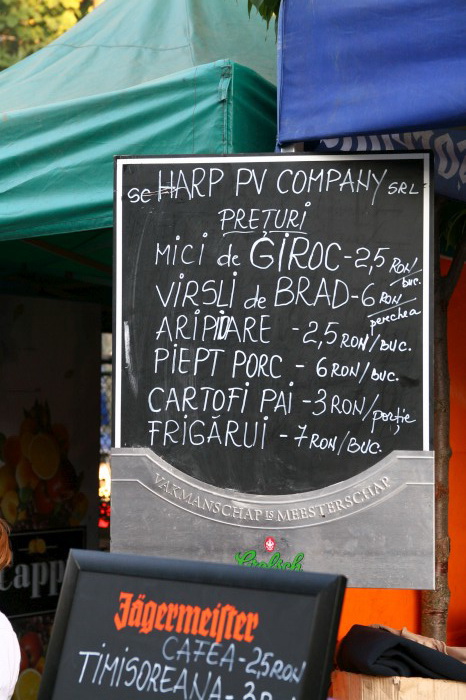 SC HARP PV COMPANY SRL
PREȚURI
MICI de GIROC-2,5 RON/buc.
VIRSLI de BRAD-6 RON/perechea
ARIPIOARE -2,5 RON/BUC.
PIEPT PORC - 6 RON/BUC.
CARTOFI PAI -3 RON/porție
FRIGĂRUI -7 RON/BUC.
VAKMANSCHAP IS MEESTERSCHAP
Grolsch
Capp
Jägermeister
CAFEA-2,5 RON
TIMISOREANA-3R